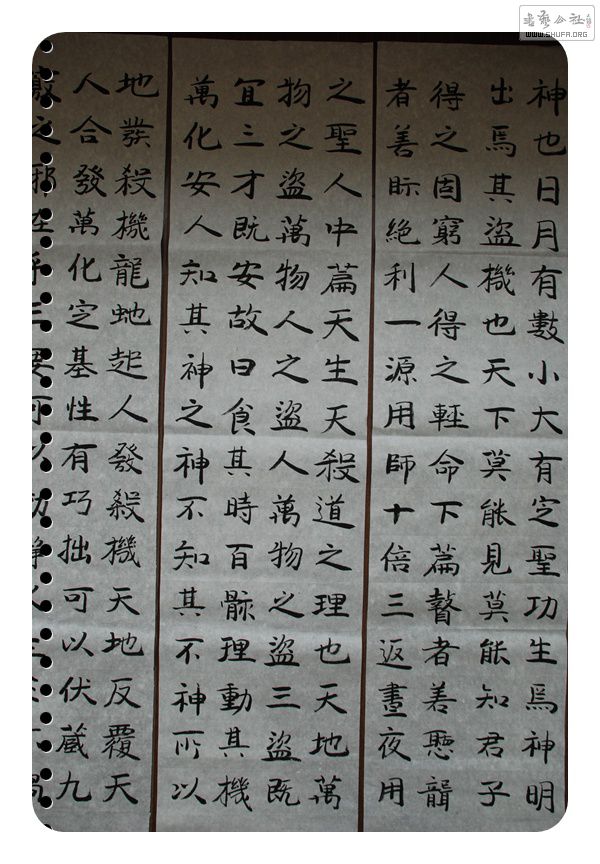 書藝公社
WWW.SHUFA.ORG
神也日月有數小大有定聖功生焉神明
出焉其盜機也天下莫能見莫能知君子
得之固窮人得之輕命下篇瞽者善聽聾
者善眎絕利一源用師十倍三返晝夜用
之聖人中篇天生天殺道之理也天地萬
物之盜萬物人之盜人萬物之盜三盜既
宜三才既安故曰食其時百骸理動其機
萬化安人知其神之神不知其不神所以
地發殺機龍虵起人發殺機天地反覆天
人合發萬化定基性有巧拙可以伏藏九
竅之邪在乎三要可以動靜